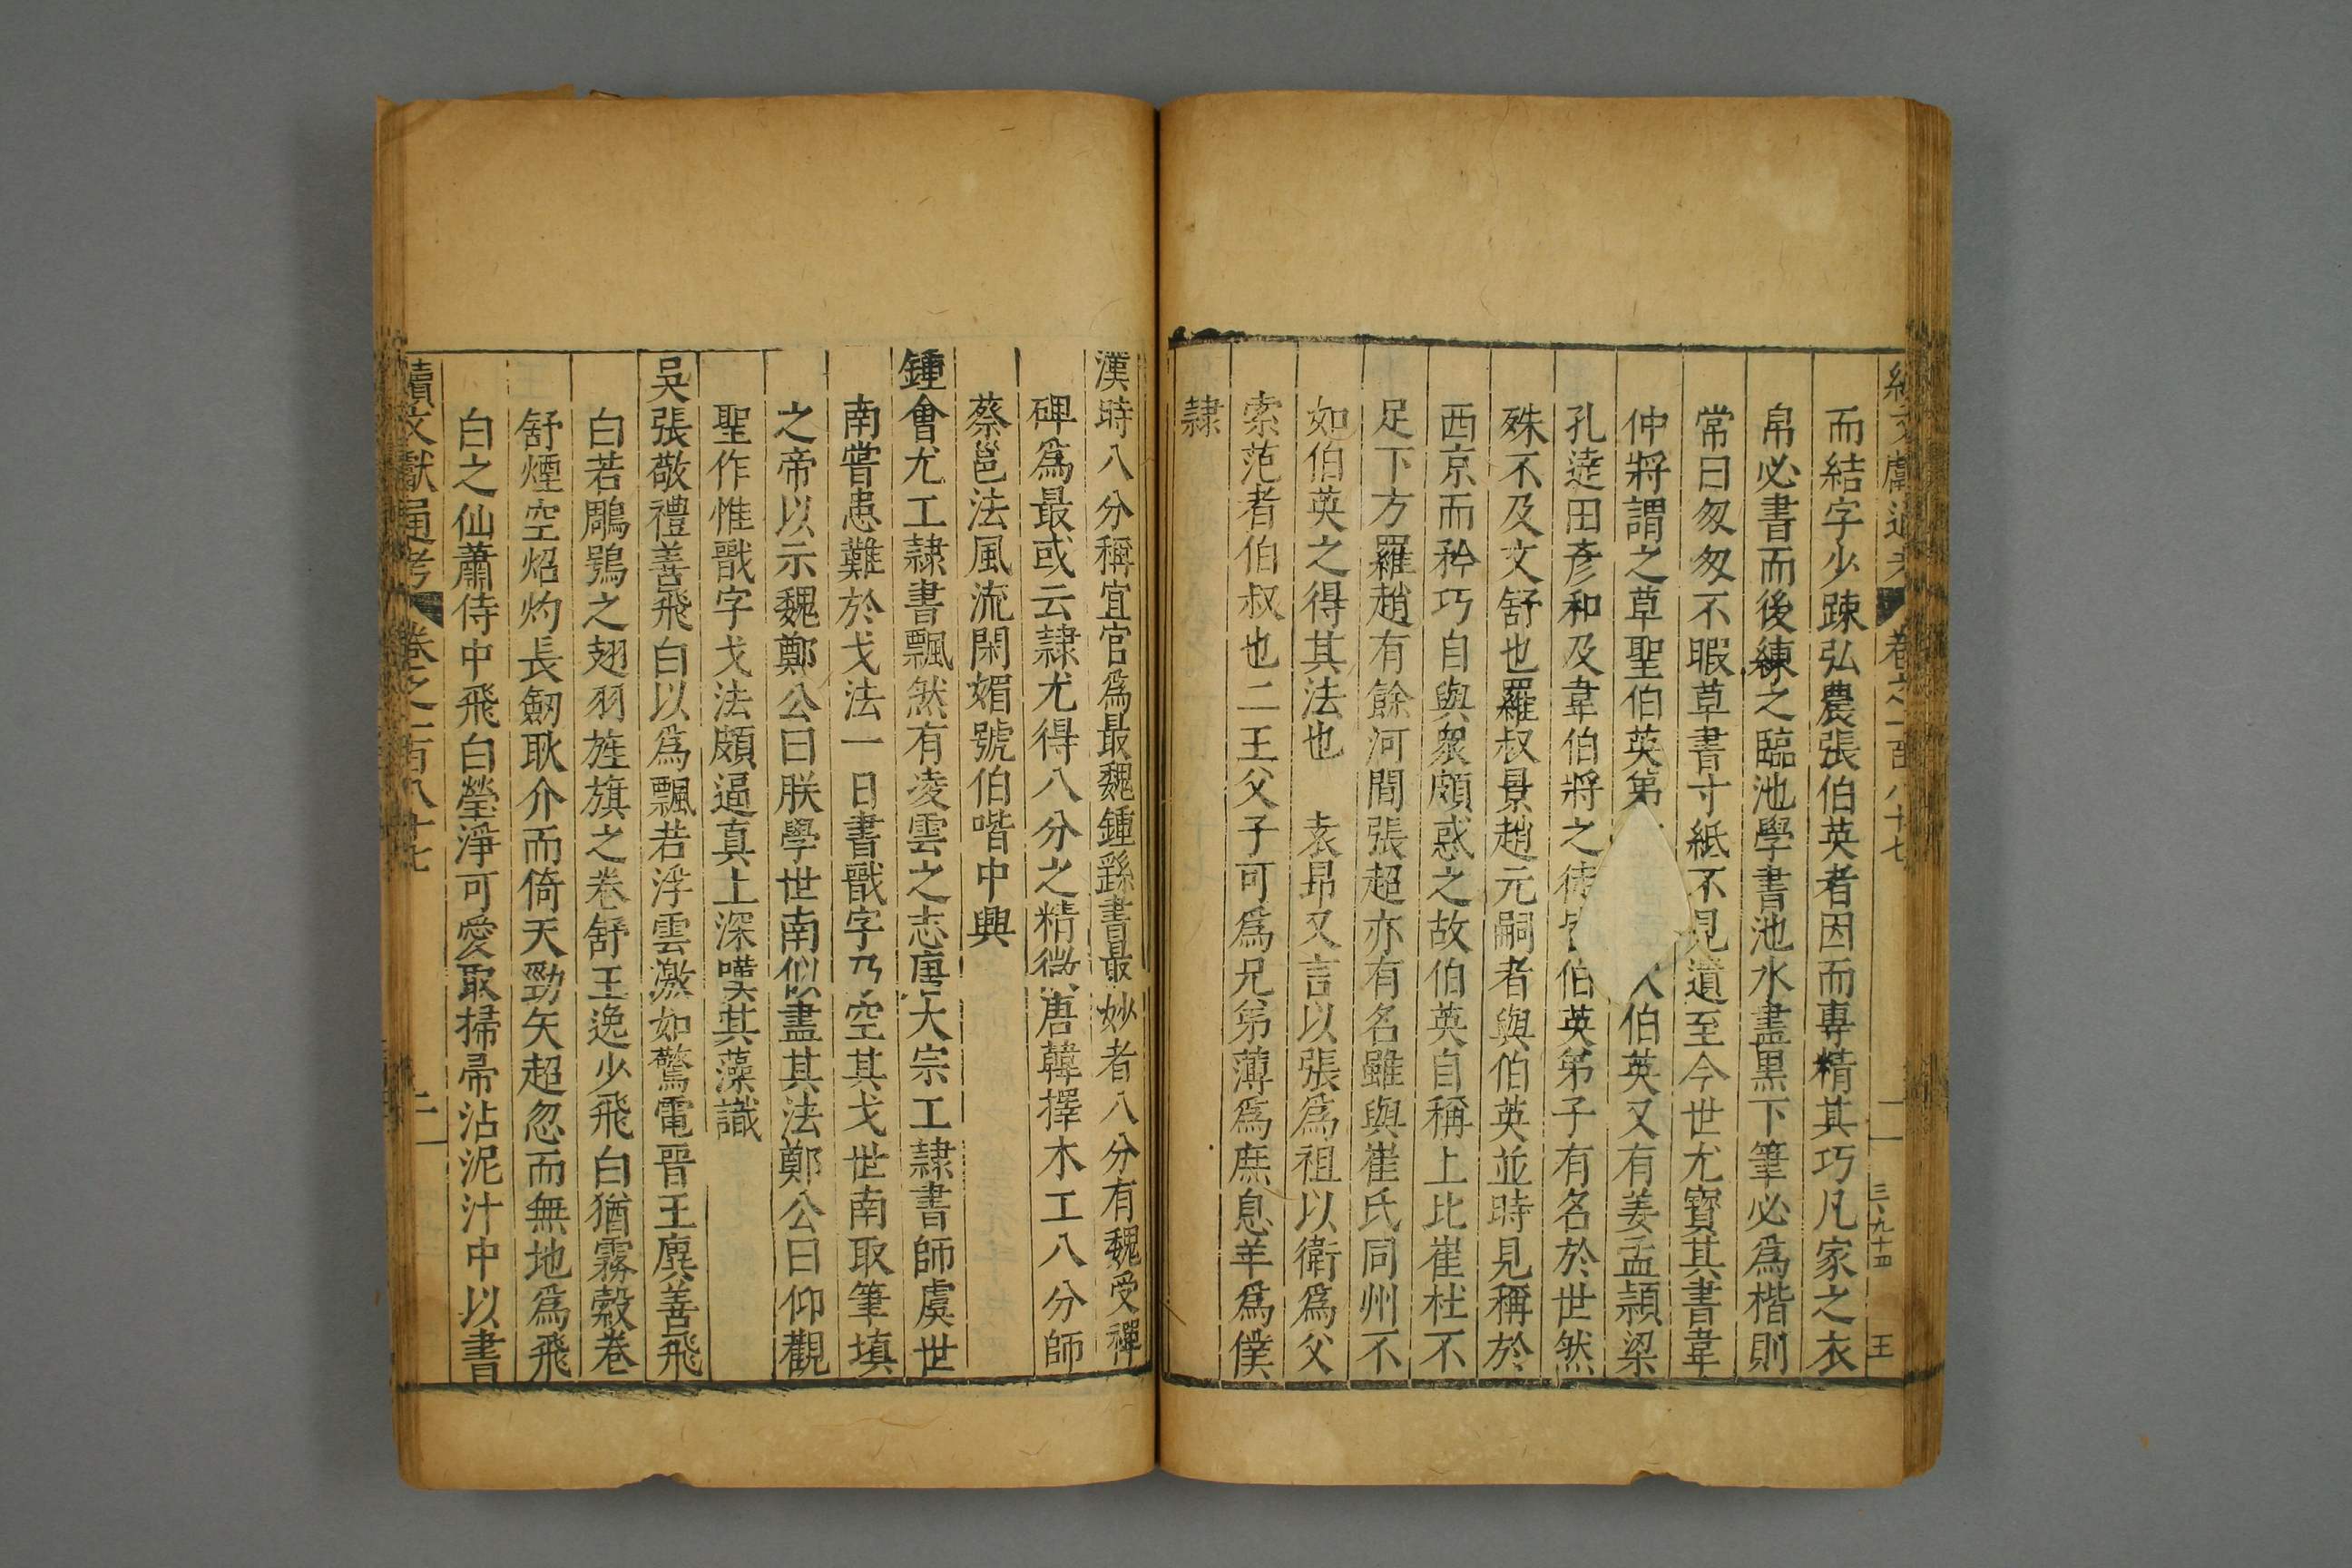 續文獻通考 卷之一百八十七 三九十四 王
而結字少踈弘農張伯英者因而專精其巧凡家之衣
帛必書而後練之臨池學書池水盡黑下筆必爲楷則
常曰匆匆不暇草書寸紙不見遺至今世尤寶其書韋
仲將謂之草聖伯英第 伯英又有姜孟頴梁
孔逹田彥和及韋伯將之徒 伯英弟子有名於世然
殊不及文舒也羅叔景趙元嗣者與伯英並時見稱於
西京而矜巧自與衆頗惑之故伯英自稱上比崔杜不
足下方羅趙有餘河間張超亦有名雖與崔氏同州不
如伯英之得其法也 袁昻又言以張爲祖以衛爲父
索范者伯叔也二王父子可爲兄弟薄爲庶息羊爲僕
隷
漢時八分稱宜官爲最魏鍾繇書最妙者八分有魏受禪
碑爲最或云隷尤得八分之精微唐韓擇木工八分師
蔡邕法風流閑媚號伯喈中興
鍾會尤工隷書飄然有凌雲之志唐大宗工隷書師虞世
南嘗患難於戈法一日書戩字乃空其戈世南取筆填
之帝以示魏鄭公曰朕學世南似盡其法鄭公曰仰觀
聖作惟戩字戈法頗逼真上深嘆其藻識
吳張敬禮善飛白以爲飄若浮雲激如驚電晉王廙善飛
白若鵰鶚之翅羽旌旗之卷舒王逸少飛白猶霧縠卷
舒煙空炤灼長劒耿介而倚天勁矢超忽而無地爲飛
白之仙蕭侍中飛白瑩淨可愛取掃帚沾泥汁中以書
續文獻通考 卷之一百八十七 二